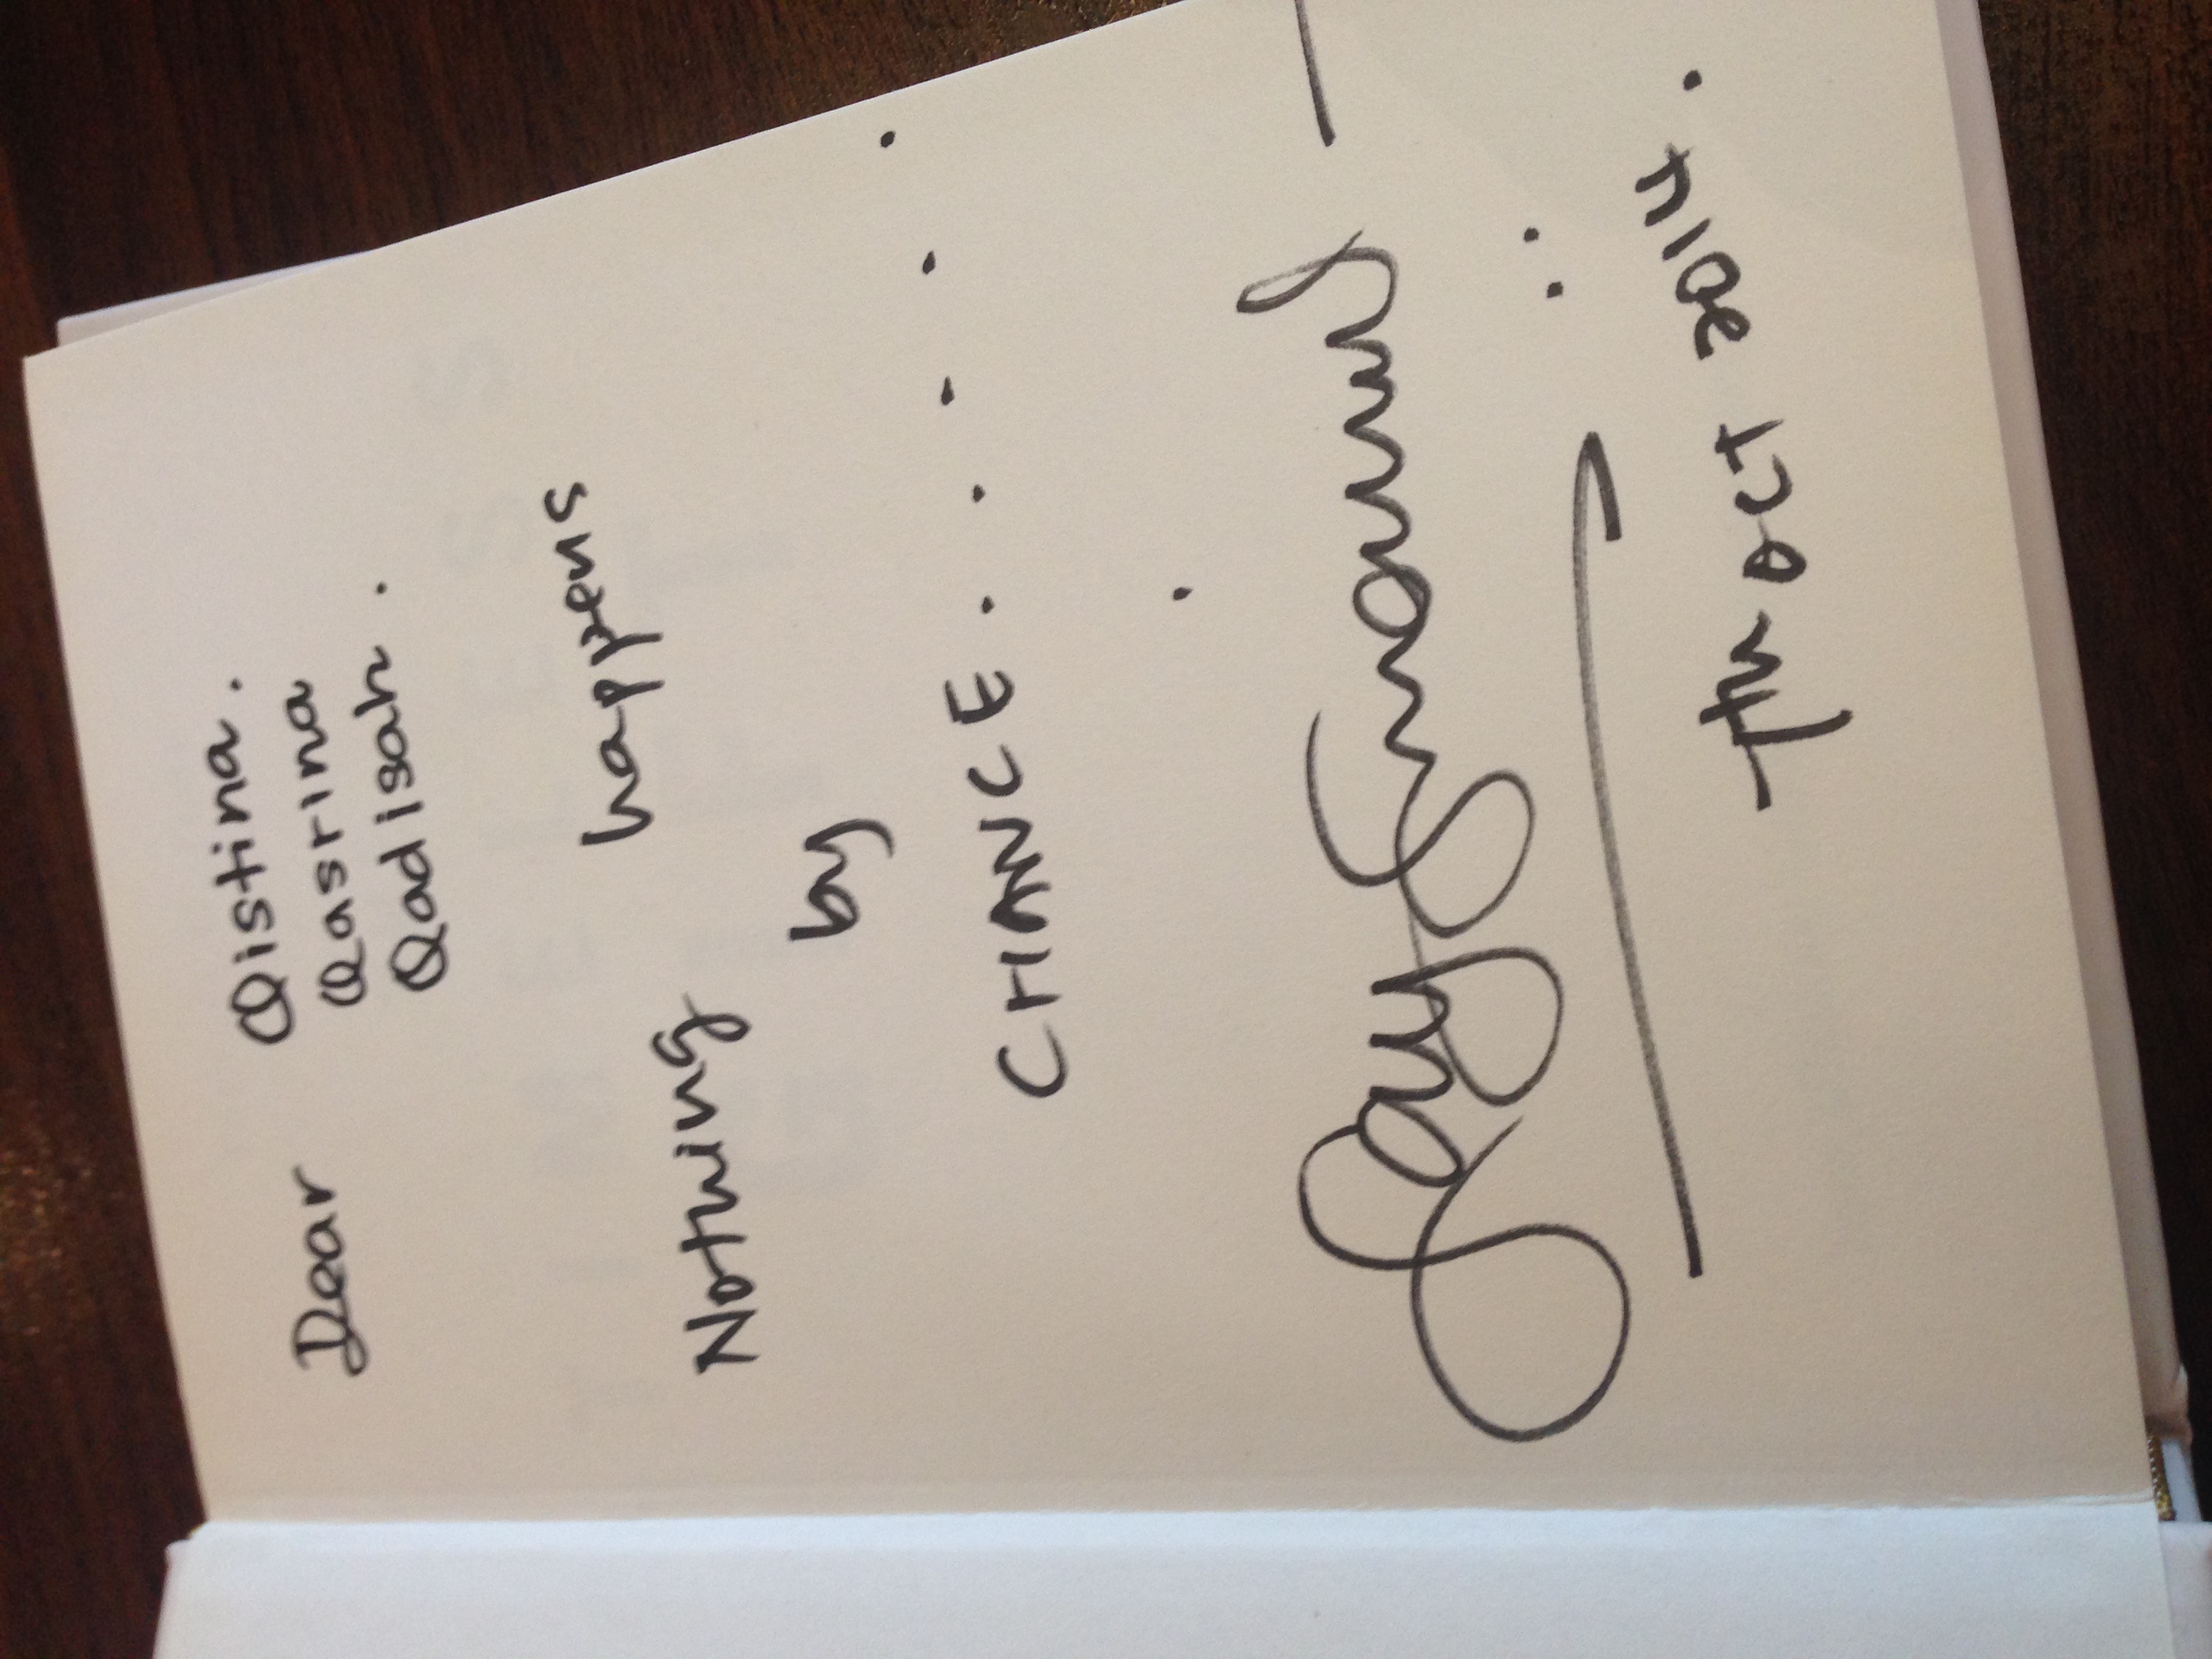 Dear Qistina.
Qasrina
Qadisah.
Nothing happens
by
CHANCE......
7th OCT 2014.